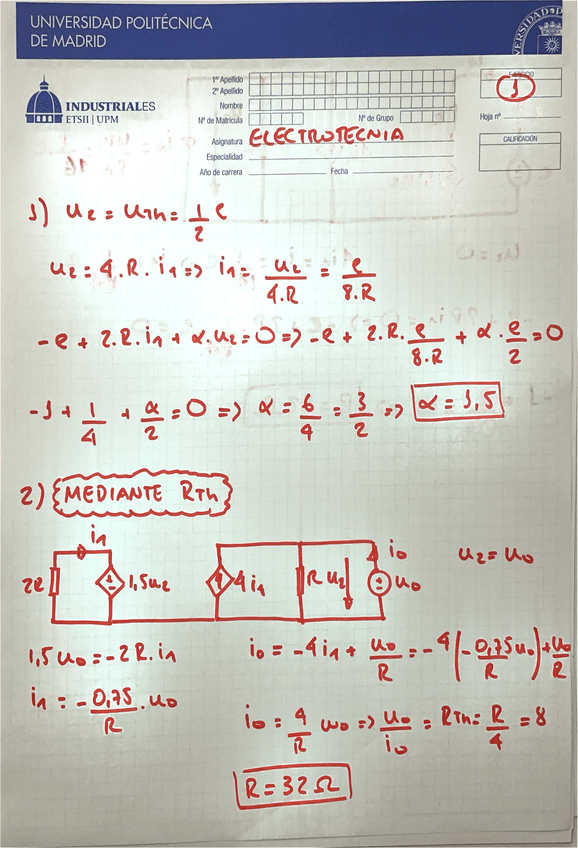 UNIVERSIDAD POLITÉCNICA
DE MADRID
INDUSTRIALES
ETSII | UPM
1º Apellido
2º Apellido
Nombre
Nº de Matrícula
Nº de Grupo
Asignatura ELECTROTECNIA
Especialidad
Año de carrera
Fecha
EJERCICIO
1
Hoja nº
CALIFICACIÓN
1) u2 = uTh = 1/2 e
u2 = 4.R.i1 => i1 = u2/4.R = e/8.R
-e + 2.R.i1 + α.u2 = 0 => -e + 2.R.e/8.R + α.e/2 = 0
-1 + 1/4 + α/2 = 0 => α = 6/4 = 3/2 => α = 1,5
2) MEDIANTE RTh
i1
2R
1,5u2
4i1
R
u2
i0
u0
u2 = u0
1,5u0 = -2R.i1
i0 = -4i1 + u0/R = -4(-0,75u0/R) + u0/R
i1 = -0,75/R . u0
i0 = 4/R u0 => u0/i0 = RTh = R/4 = 8
R = 32 Ω